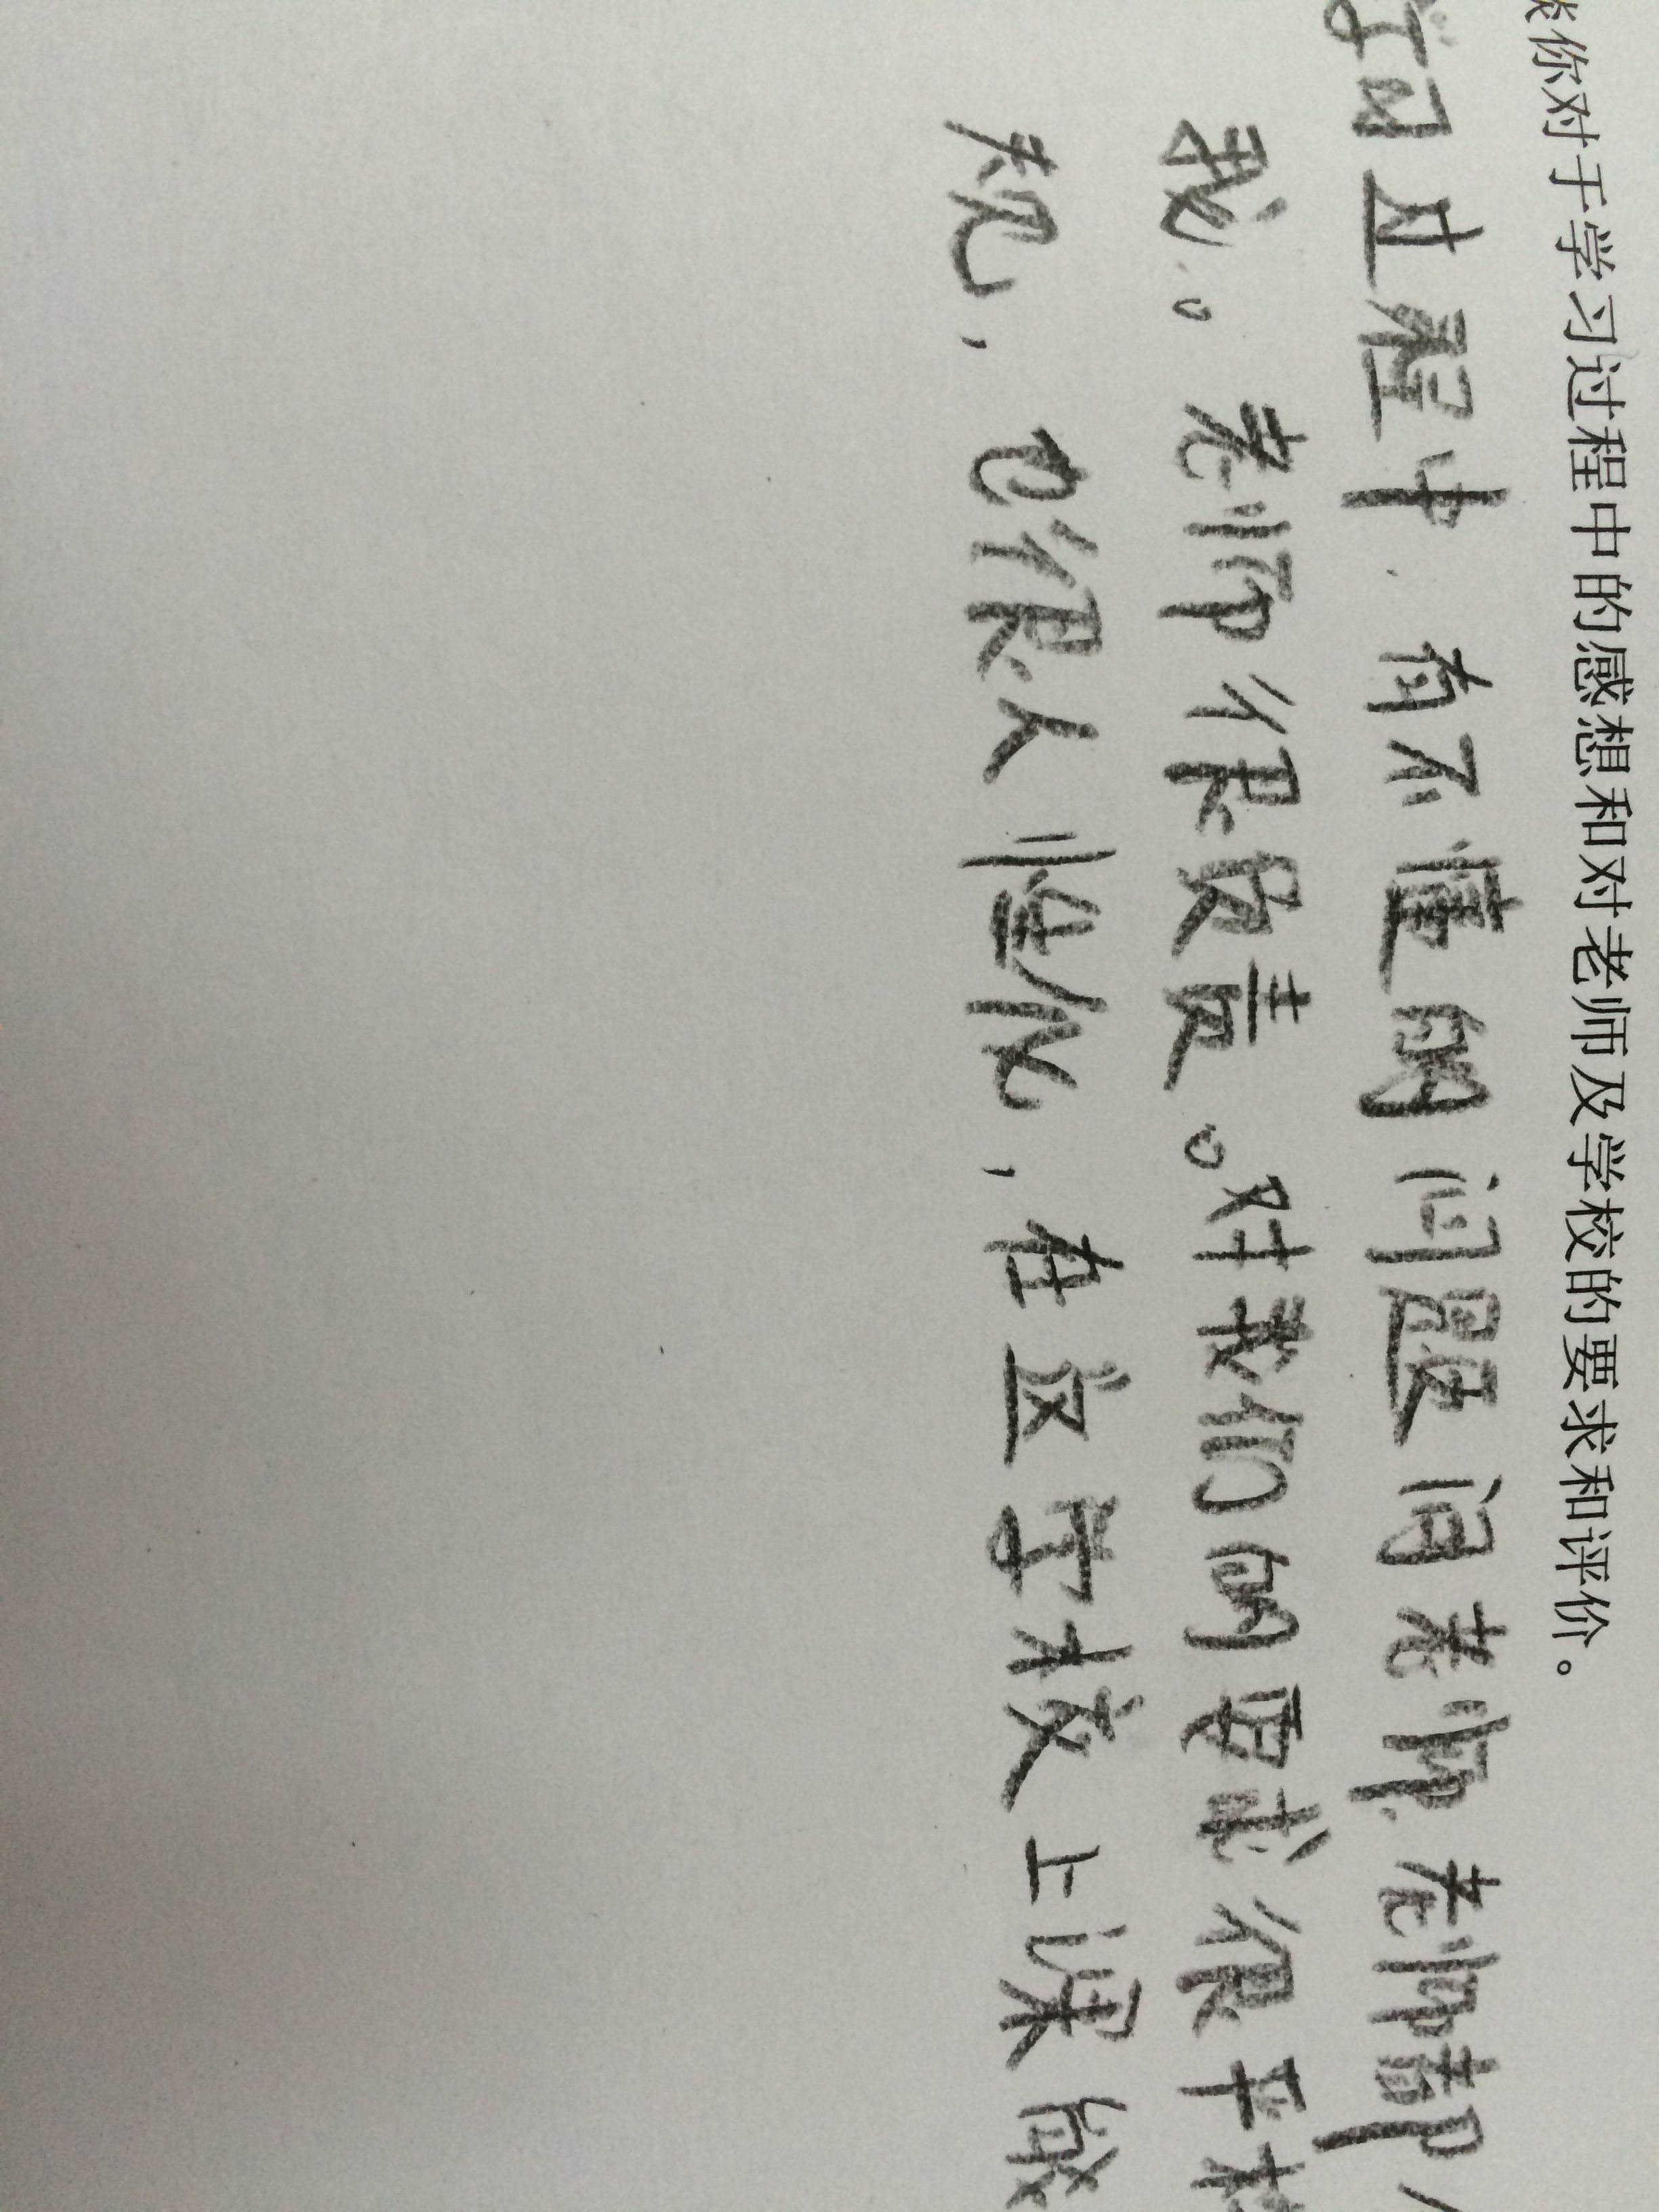 谈你对于学习过程中的感想和对老师及学校的要求和评价。
学习过程中.有不懂的问题问老师,老师都
我。老师很负责。对我们的要求很平
规,也很人性化,在这学校上课做